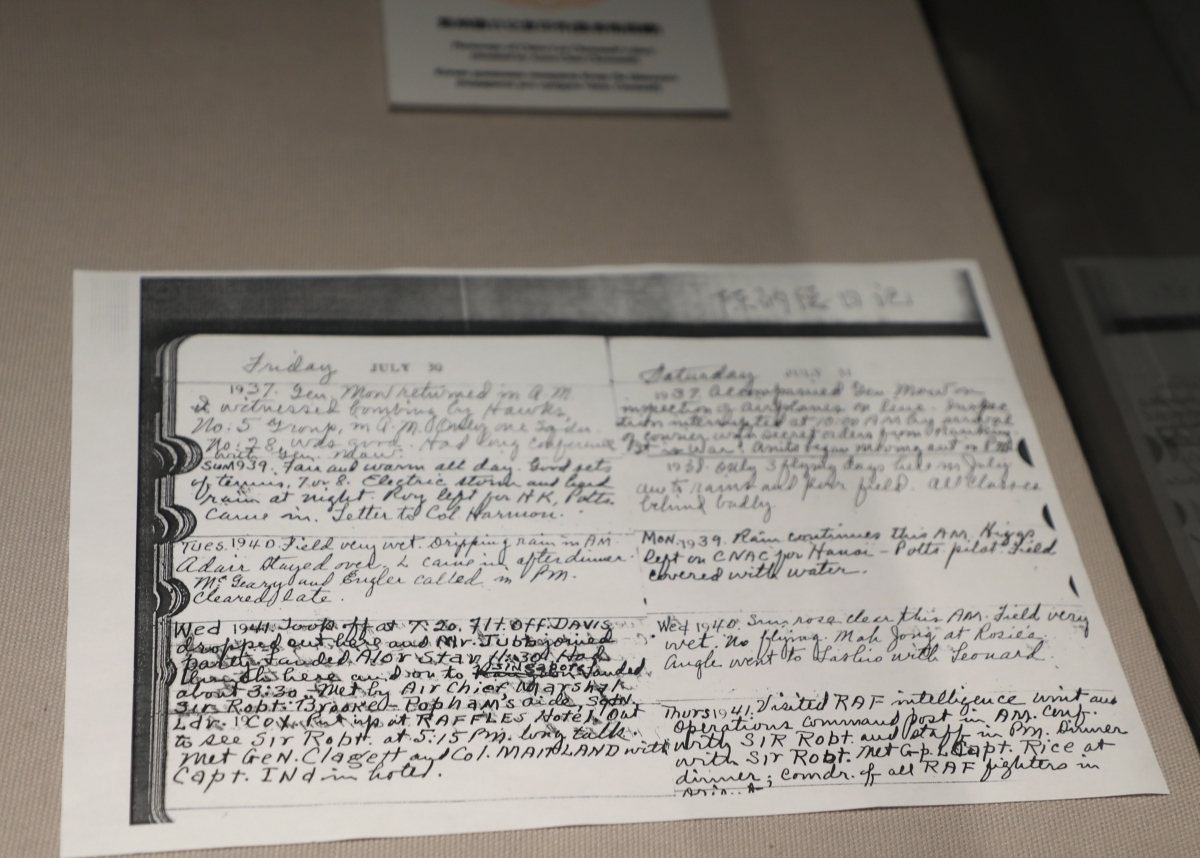 陈纳德日记
Friday JULY 30
1937. Gen Mow returned in A.M.
& witnessed bombing by Hawks,
No. 5 Group, in A.M. Only one
No. 28, was good. Had long conference
with Gen Mow.
SUN 1939. Fair and warm all day. Good sets
of tennis, 7 or 8. Electric storm and
rain at night. Roy left for H.K, Potts
came in. Letter to Col Harmon.
TUES. 1940. Field very wet. Dripping rain in AM.
Adair stayed over, & came in after dinner.
McGeary and Engler called in PM.
Cleared late.
Wed 1941. Took off at 7:20. Flt. Off. DAVIS
dropped out here and Mr. Tubb joined
party. Landed Alor Star 11:30. Had
lunch here and on to SINGAPORE landed
about 3:30. Met by Air Chief Marshal
Sir Robt. Brooke-Popham's aide, Sqdn.
Ldr. COX. Put up at RAFFLES Hotel. Out
to see Sir Robt. at 5:15 PM. long talk.
Met GeN. Clagett and Col. MAITLAND with
Capt. IND in hotel.
Saturday JULY 31
1937. Accompanied Gen Mow on
inspection of airplanes on line. Inspec
tion interrupted at 10:00 AM by arrival
of courier with secret orders from Nanking
in War. Units began moving out in PM.
1938. Only 3 flying days here in July
due to rains and poor field. All Classes
behind badly.
MON. 1939. Rain continues this AM.
left on CNAC for Hanoi - Potts pilot. Field
covered with water.
Wed 1940. Sun rose clear this AM. Field very
wet. No flying. Mah Jong at Rosie's.
Angle went to Lashio with Leonard
Thurs 1941. Visited RAF intelligence
Operations command post in AM. Conf.
with SIR Robt and staff in PM. Dinner
with Sir Robt. Met Grp. Capt. Rice at
dinner; comdr. of all RAF fighters in